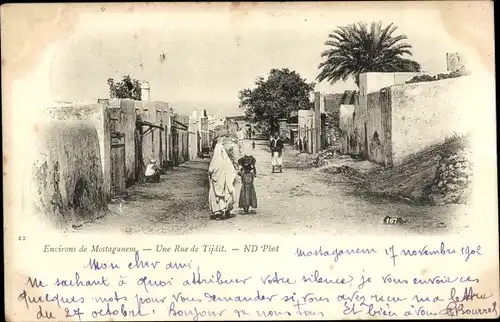 12
Environs de Mostaganem. — Une Rue de Tijdit. — ND Phot
Mostaganem 17 novembre 1902
Mon cher ami,
Ne sachant à quoi attribuer votre silence, je vous envoie ces
quelques mots pour vous demander si vous avez reçu ma lettre
du 27 octobre. Bonjour je nous tous Et bien à vous